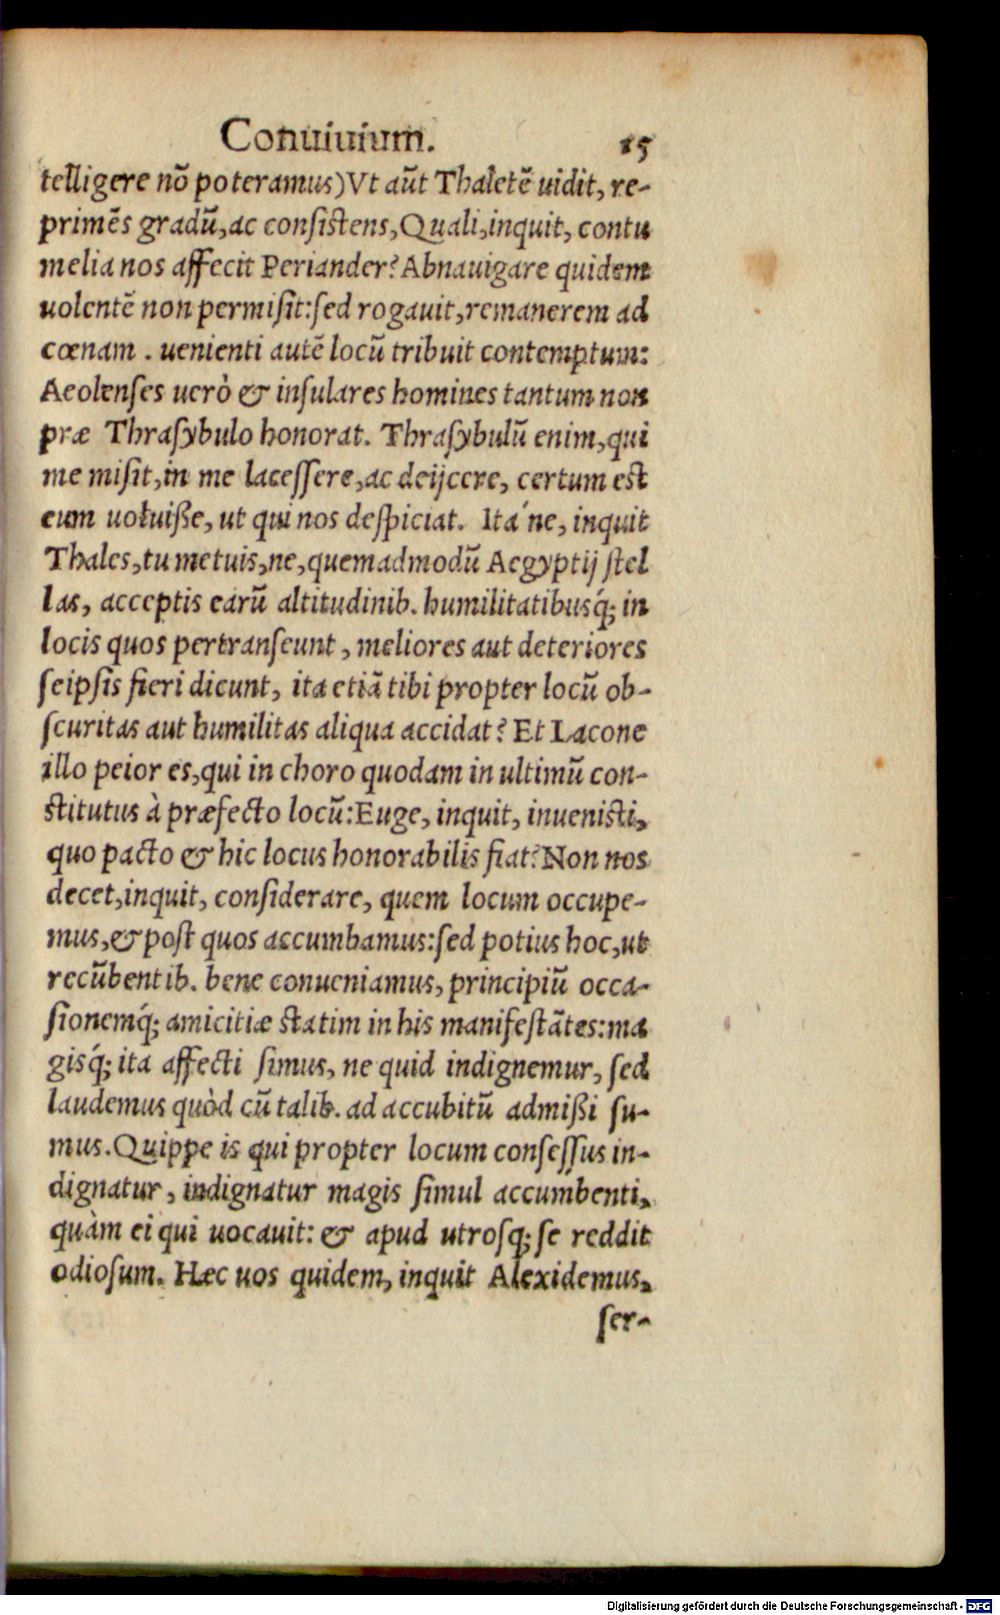 Conuiuium. 15
telligere nõ poteramus)Vt aũt Thaletẽ uidit, re-
primẽs gradũ,ac consistens,Quali,inquit, contu
melia nos affecit Periander? Abnauigare quidem
uolentẽ non permisit:sed rogauit,remanerem ad
cœnam . uenienti autẽ locũ tribuit contemptum:
Aeolenses uerò & insulares homines tantum non
præ Thrasybulo honorat. Thrasybulũ enim,qui
me misit,in me lacessere,ac deijcere, certum est
eum uoluiße, ut qui nos despiciat. Ita ́ne, inquit
Thales,tu metuis,ne,quemadmodũ Aegyptij stel
las, acceptis earũ altitudinib. humilitatibusq́; in
locis quos pertranseunt , meliores aut deteriores
seipsis fieri dicunt, ita etiã tibi propter locũ ob-
scuritas aut humilitas aliqua accidat? Et Lacone
illo peior es,qui in choro quodam in ultimũ con-
stitutus à præfecto locũ:Euge, inquit, inuenisti,
quo pacto & hic locus honorabilis fiat?Non nos
decet,inquit, considerare, quem locum occupe-
mus,& post quos accumbamus:sed potius hoc,ut
recũbentib. bene conueniamus, principiũ occa-
sionemq́; amicitiæ statim in his manifestãtes:ma
gisq́; ita affecti simus, ne quid indignemur, sed
laudemus quòd cũ talib. ad accubitũ admißi su-
mus.Quippe is qui propter locum consessus in-
dignatur , indignatur magis simul accumbenti,
quàm ei qui uocauit: & apud utrosq; se reddit
odiosum. Hæc uos quidem, inquit Alexidemus,
ser-
Digitalisierung gefördert durch die Deutsche Forschungsgemeinschaft - DFG